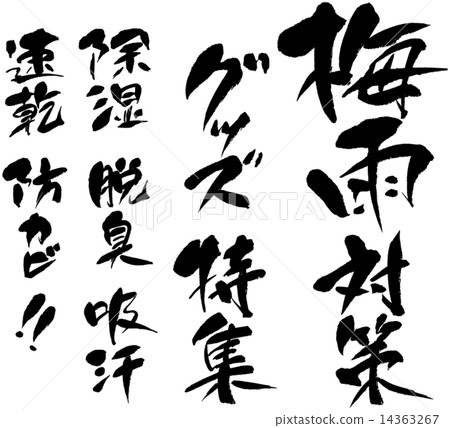 梅雨対策
グッズ特集
除湿 脱臭 吸汗
速乾 防カビ!!
14363267